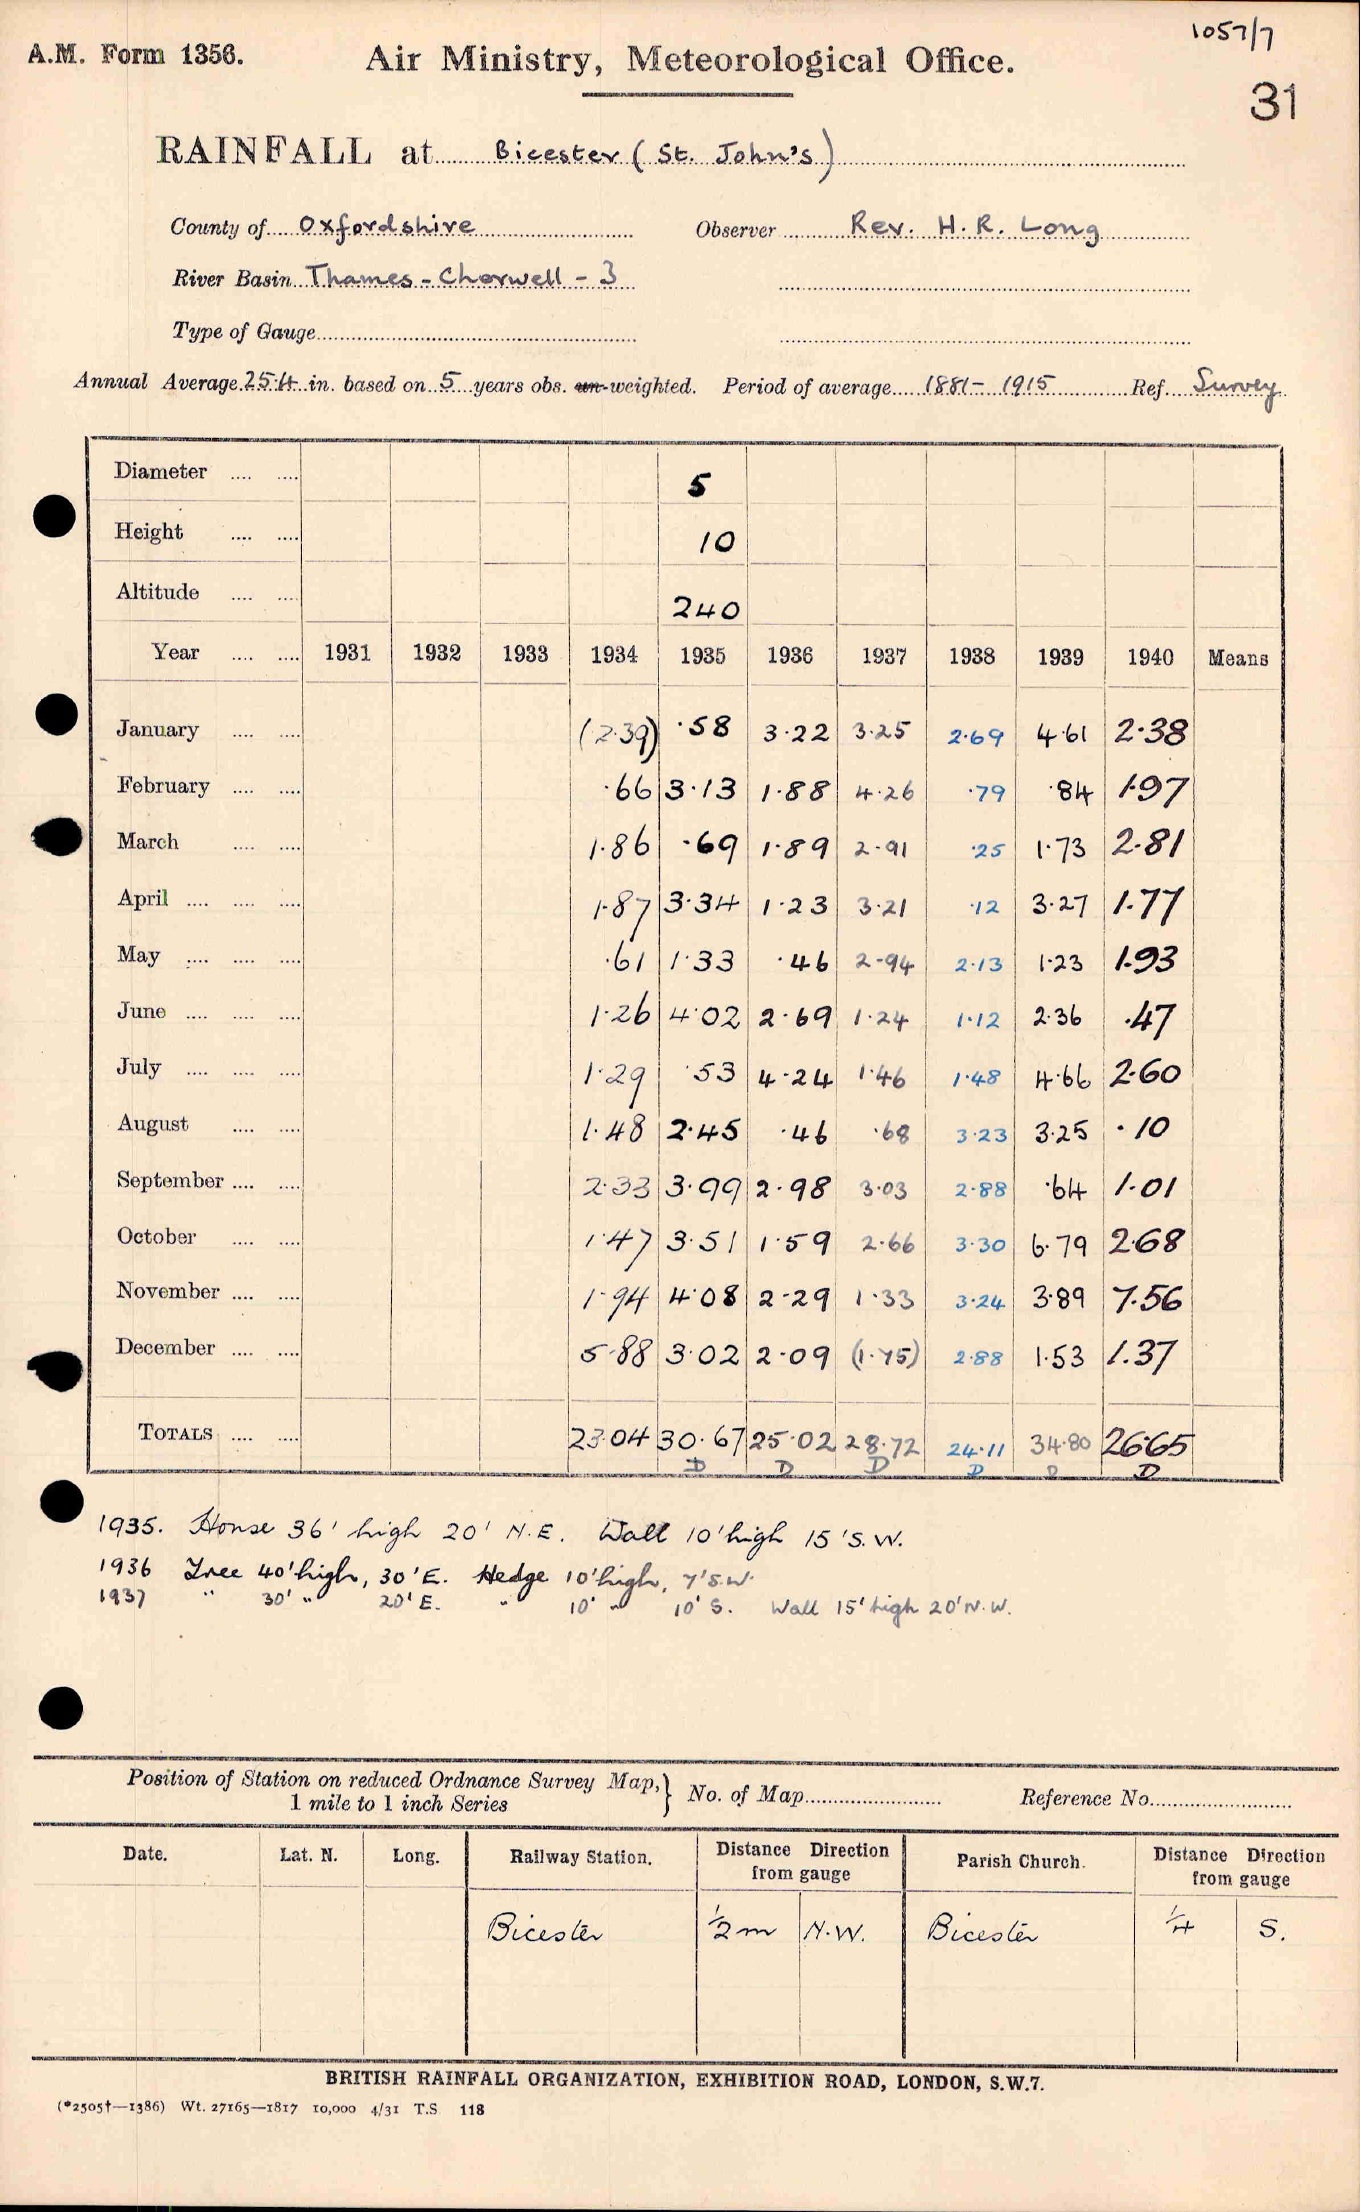 1057/7
A.M. Form 1356. Air Ministry, Meteorological Office.
31
RAINFALL at Bicester (St. John's)
County of Oxfordshire Observer Rev. H. R. Long
River Basin Thames - Cherwell - 3
Type of Gauge
Annual Average 25.4 in. based on 5 years obs. un-weighted. Period of average 1881 - 1915 Ref. Survey
Diameter 5
Height 10
Altitude 240
Year 1931 1932 1933 1934 1935 1936 1937 1938 1939 1940 Means
January (2.39) .58 3.22 3.25 2.69 4.61 2.38
February .66 3.13 1.88 4.26 .79 .84 1.97
March 1.86 .69 1.89 2.91 .25 1.73 2.81
April 1.87 3.34 1.23 3.21 .12 3.27 1.77
May .61 1.33 .46 2.94 2.13 1.23 1.93
June 1.26 4.02 2.69 1.24 1.12 2.36 .47
July 1.29 .53 4.24 1.46 1.48 4.66 2.60
August 1.48 2.45 .46 .68 3.23 3.25 .10
September 2.33 3.99 2.98 3.03 2.88 .64 1.01
October 1.47 3.51 1.59 2.66 3.30 6.79 2.68
November 1.94 4.08 2.29 1.33 3.24 3.89 7.56
December 5.88 3.02 2.09 (1.75) 2.88 1.53 1.37
TOTALS 23.04 30.67 25.02 28.72 24.11 34.80 26.65
D D D D D D
1935. House 36' high 20' N.E. Wall 10' high 15' S.W.
1936 Tree 40' high, 30' E. Hedge 10' high, 7' S.W.
1937 " 30' " 20' E. " 10' " 10' S. Wall 15' high 20' N.W.
Position of Station on reduced Ordnance Survey Map, } No. of Map Reference No.
1 mile to 1 inch Series
Date. Lat. N. Long. Railway Station. Distance from gauge Direction Parish Church. Distance from gauge Direction
Bicester 1/2 m N.W. Bicester 1/4 S.
BRITISH RAINFALL ORGANIZATION, EXHIBITION ROAD, LONDON, S.W.7.
(*2505†—1386) Wt. 27165—1817 10,000 4/31 T.S 118